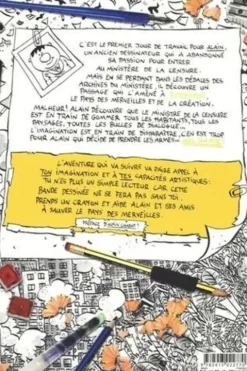 C'EST LE PREMIER JOUR DE TRAVAIL POUR ALAIN,
UN ANCIEN DESSINATEUR QUI A ABANDONNÉ
SA PASSION POUR ENTRER
AU MINISTÈRE DE LA CENSURE.
MAIS EN SE PERDANT DANS LES DÉDALES DES
ARCHIVES DU MINISTÈRE, IL DÉCOUVRE UN
PASSAGE QUI L'AMÈNE À
LE PAYS DES MERVEILLES ET DE LA CRÉATION.
MALHEUR! ALAIN DÉCOUVRE QUE LE MINISTRE DE LA CENSURE
EST EN TRAIN DE GOMMER TOUS LES HABITANTS, TOUS LES
PAYSAGES, TOUTES LES BULLES DE DIALOGUE...
L'IMAGINATION EST EN TRAIN DE DISPARAÎTRE, C'EN EST TROP
POUR ALAIN QUI DÉCIDE DE PRENDRE LES ARMES...
L'AVENTURE QUI VA SUIVRE VA FAIRE APPEL À
TON IMAGINATION ET À TES CAPACITÉS ARTISTIQUES:
TU N'ES PLUS UN SIMPLE LECTEUR CAR CETTE
BANDE DESSINÉE NE SE FERA PAS SANS TOI.
PRENDS UN CRAYON ET AIDE ALAIN ET SES AMIS
À SAUVER LE PAYS DES MERVEILLES.